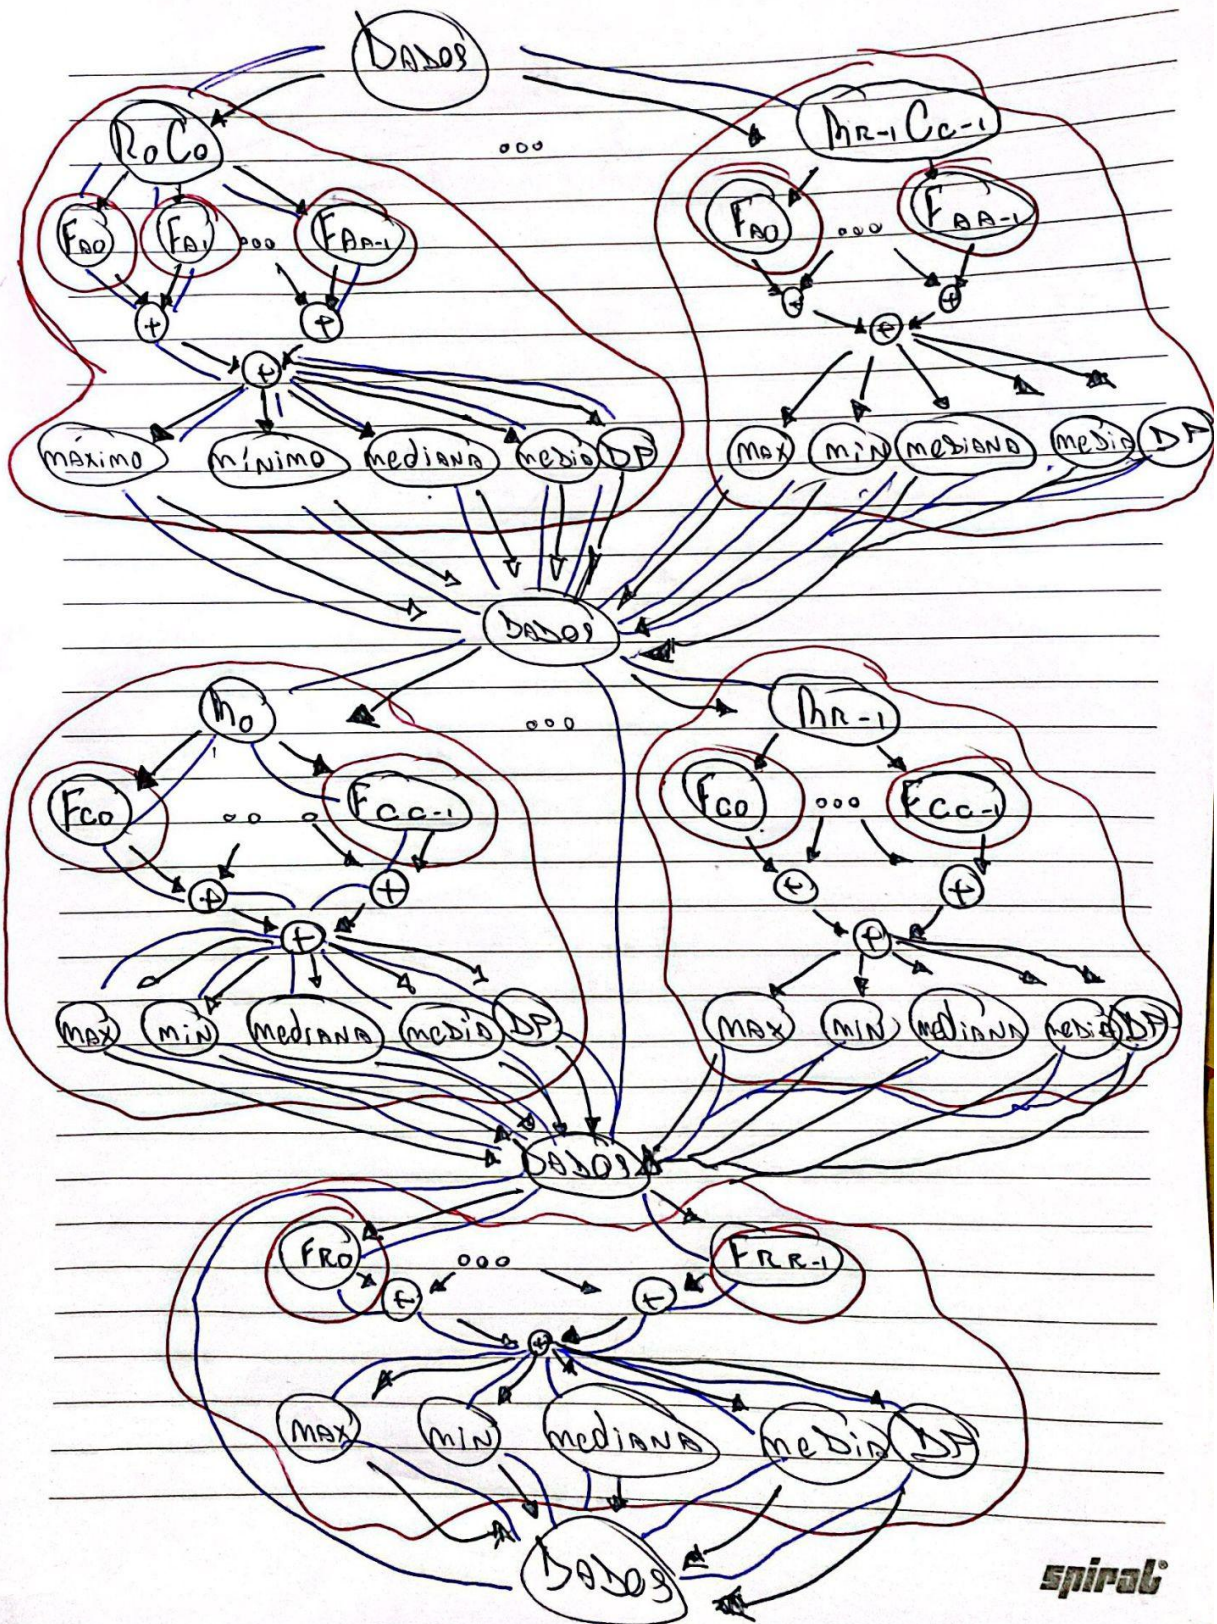 DADOS
R0C0 ... RR-1 CC-1
FA0 FA1 ... FAA-1 FA0 ... FAA-1
+ + + +
+ +
máximo mínimo mediana media DP max min mediana media DP
DADOS
R0 ... RR-1
FC0 ... FCC-1 FC0 ... FCC-1
+ + + +
+ +
max min mediana media DP max min mediana media DP
DADOS
FR0 ... FRR-1
+ +
+
max min mediana media DP
DADOS
spiral®